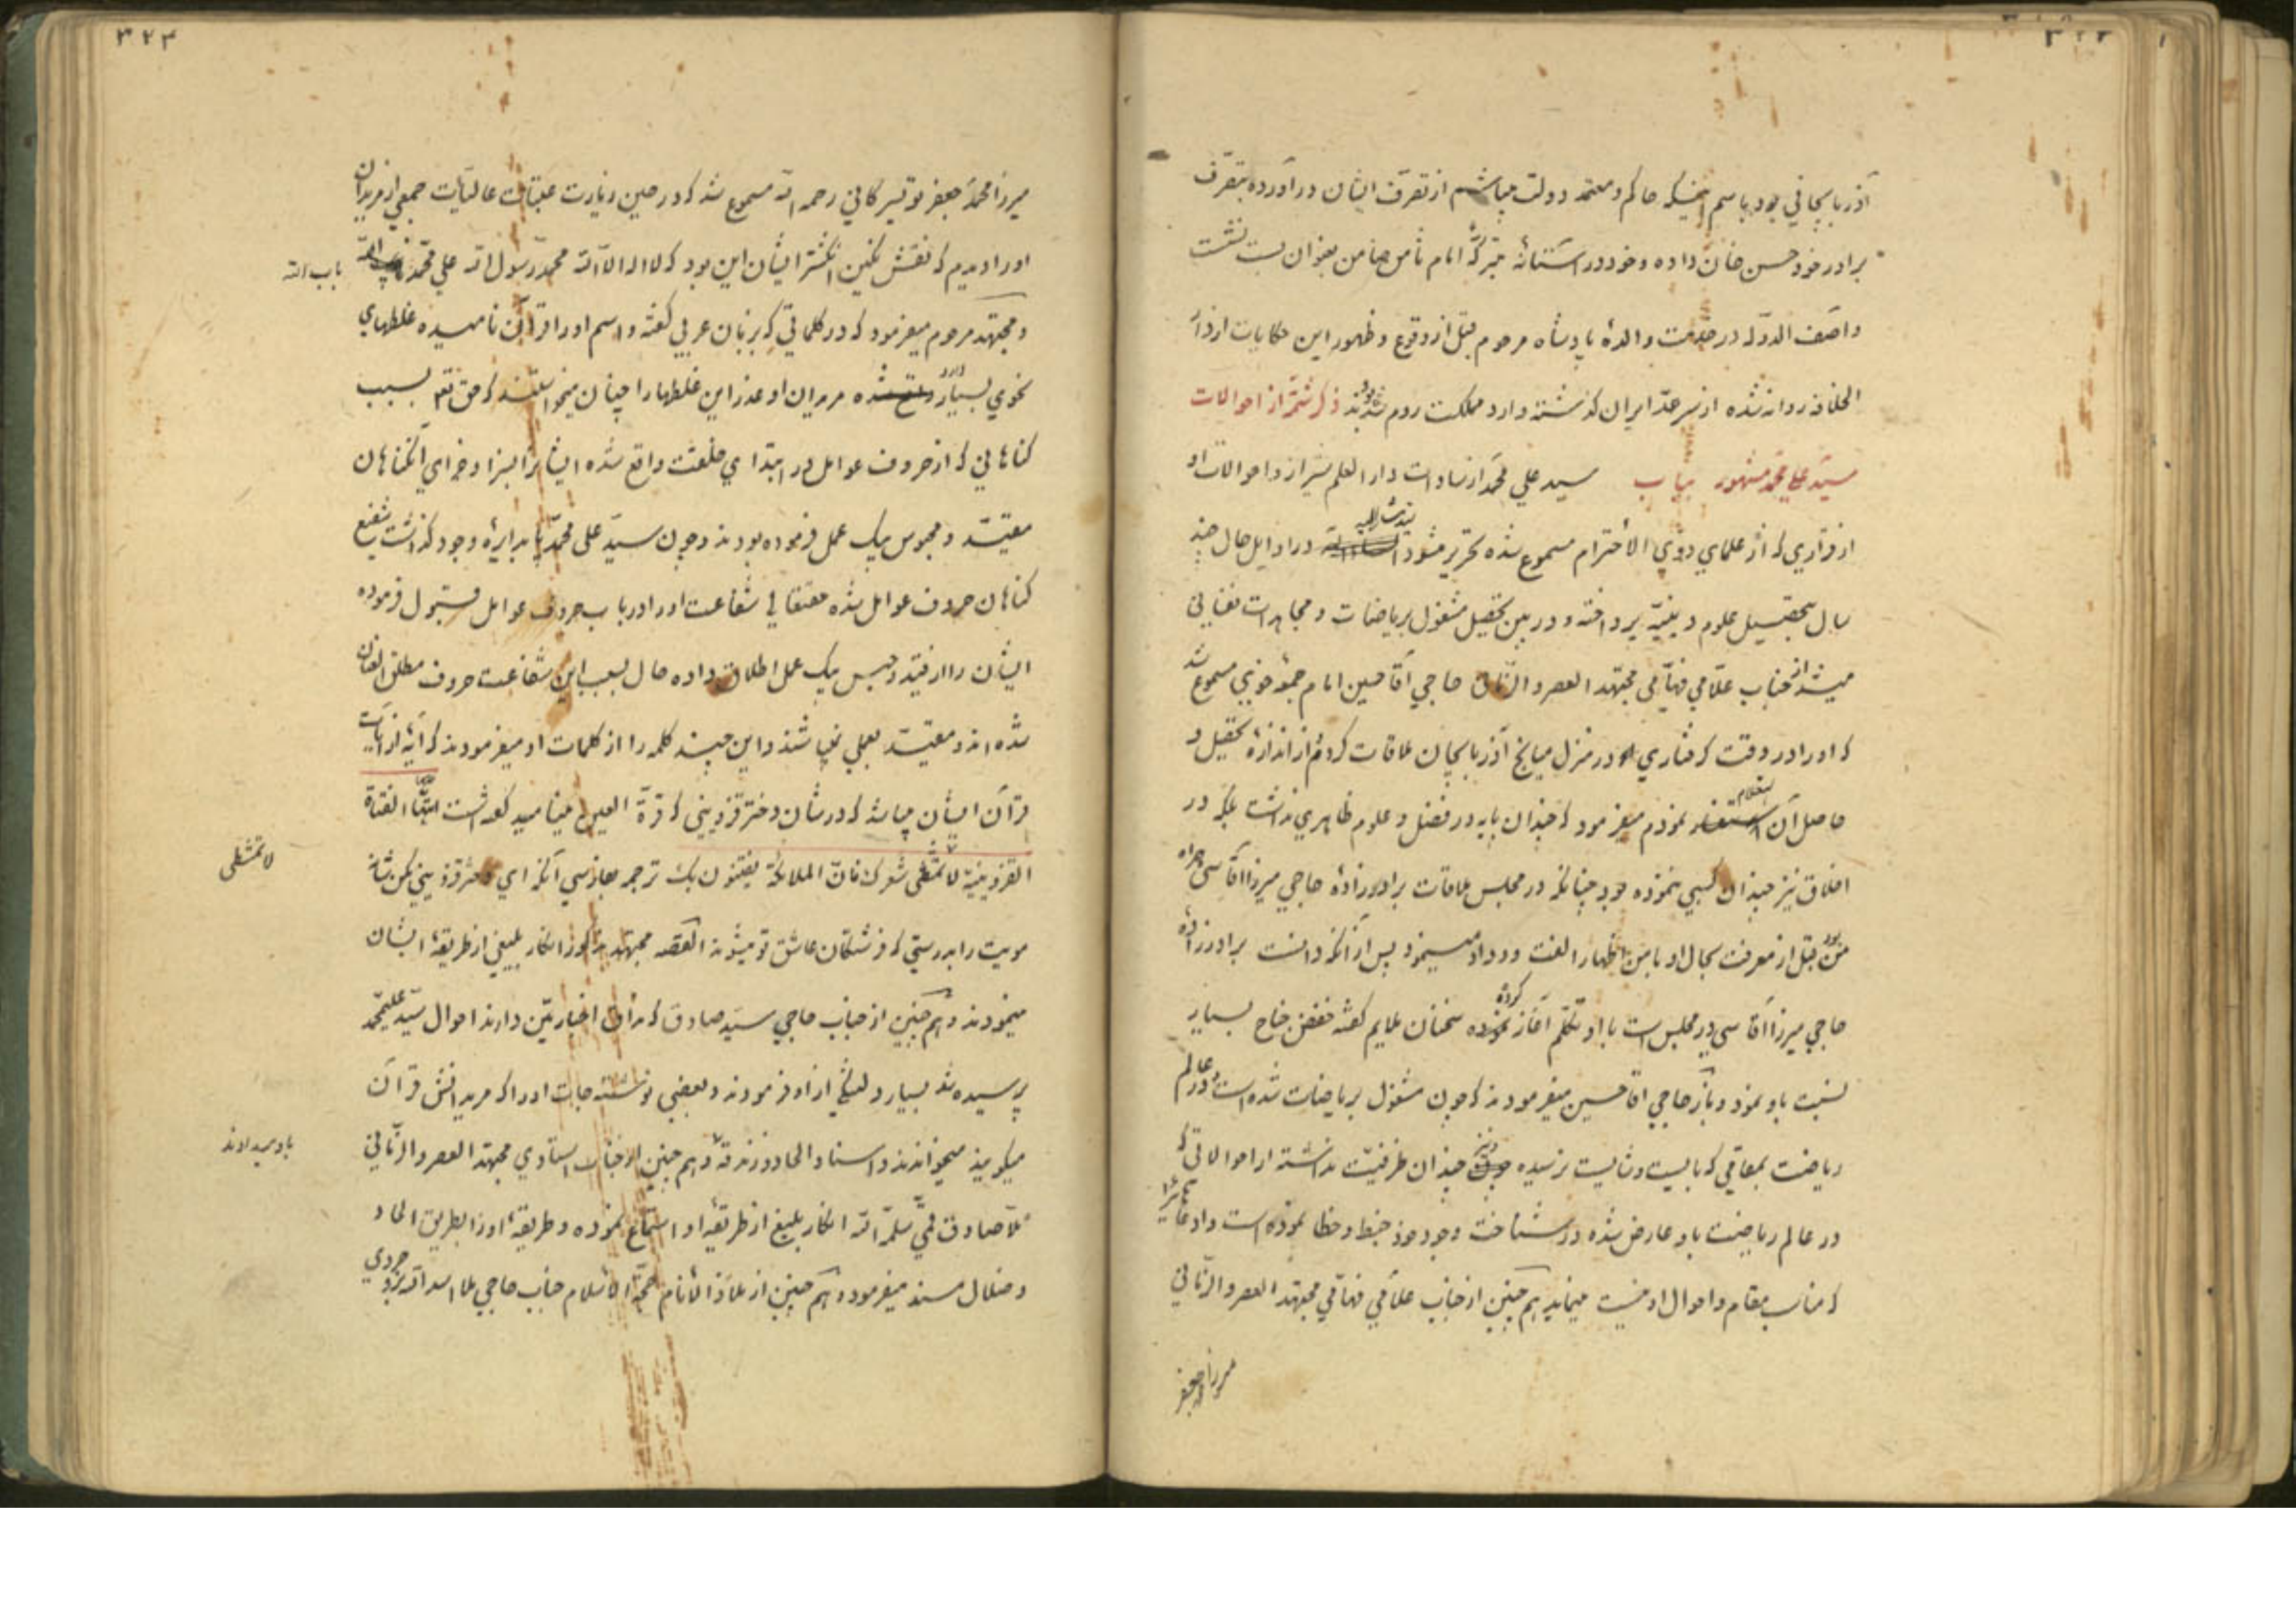 آذربایجانی بود باسم اینکه حاکم و معتمد دولت میباشم از تصرف ایشان در آورده بتصرف
برادر خود حسن خان داده و خود در آستانهٔ متبرکهٔ امام ثامن ضامن بعنوان بست نشست
و آصف الدوله در خدمت والدهٔ پادشاه مرحوم قبل از وقوع و ظهور این حکایات از دار
الخلافه روانه شده از سرحد ایران گذشته وارد مملکت روم شده بودند ذکر شمهٔ از احوالات
سید علی محمد مشهور بباب سید علی محمد از سادات دار العلم شیراز و احوالات او
از قراری که از علمای ذوی الاحترام مسموع شده تحریر میشود در اوایل حال چند
سال بتحصیل علوم دینیه پرداخته و در بین تحصیل مشغول بریاضات و مجاهدات نفسانی
میشد از جناب علامی فهامی مجتهد العصر و الزمان حاجی آقا حسین امام جمعه خوئی مسموع شد
که او را در وقت گرفتاری در منزل میانج آذربایجان ملاقات کردم از اندازهٔ تحصیل و
حاصل آن استعلام نمودم میفرمود که چندان پایه در فضل و علوم ظاهری نداشت بلکه در
اخلاق نیز چندان کسبی ننموده بود چنانکه در مجلس ملاقات برادرزادهٔ حاجی میرزا آقاسی همراه
من بود قبل از معرفت بحال او با من اظهار الفت و وداد مینمود پس از آنکه دانست برادرزادهٔ
حاجی میرزا آقاسی در مجلس است با او تکلم آغاز کرده سخنان ملایم گفته خفض جناح بسیار
نسبت باو نمود و باز حاجی آقا حسین میفرمودند که چون مشغول بریاضات شده است و در عالم
ریاضت بمقامی که بایست و شایست نرسیده و نیز چندان ظرفیت نداشته از احوالاتی که
در عالم ریاضت باو عارض شده در شناخت وجود خود خبط و خطا نموده است و ادعاهائی را
که مناسب مقام و احوال او نیست مینماید هم چنین از جناب علامی فهامی مجتهد العصر و الزمانی
میرزا محمد جعفر
میرزا محمد جعفر تویسرکانی رحمه الله مسموع شد که در حین زیارت عتبات عالیات جمعی از مریدان
او را دیدم که نقش نگین انگشتر ایشان این بود که لا اله الا الله محمد رسول الله علی محمد باب الله
باب الله
و مجتهد مرحوم میفرمود که در کلماتی که بزبان عربی گفته و اسم او را قرآن نامیده غلطهای
نحوی بسیار دارد مریدان او عذر این غلطها را چنان میخواستند که حق تعالی بسبب
گناهانی که از حروف عوامل در ابتدای خلقت واقع شده ایشانرا بسزا و جزای آن گناهان
مقید و محبوس بیک عمل فرموده بودند و چون سید علی محمد پا بدایرهٔ وجود گذاشت شفیع
گناهان حروف عوامل شده حقتعالی شفاعت او را در باب حروف عوامل قبول فرموده
ایشان را از قید و حبس یک عمل اطلاق داده حال بسبب این شفاعت حروف مطلق العنان
شده اند و مقید بعملی نمیباشند و این چند کلمه را از کلمات او میفرمودند که آیهٔ از آیات
قرآن ایشان میباشد که در شان دختر قزوینی که قرة العین مینامید گفته است ایتها الفتاة
القزوینیة لا تمشطی شعرک فان الملائکة یفتنون بک ترجمه بفارسی آنکه ای دختر قزوینی مکن شانه
لا تمشطی
مویت را بدرستی که فرشتگان عاشق تو میشوند القصه مجتهد مذکور انکار بلیغی از طریقهٔ ایشان
مینمودند و هم چنین از جناب حاجی سید صادق که مذاق اخباریین دارند احوال سید علیمحمد
پرسیده شد بسیار تبری از او فرمودند و بعضی نوشتجات او را که مریدانش قرآن
میگویند میخواندند و اسناد الحاد و زندقه و هم چنین از جناب استادی مجتهد العصر و الزمانی
باو میدادند
ملا صادق قمی سلمه الله انکار بلیغ از طریقهٔ او استماع نموده و طریقهٔ او را بطریق الحاد
و ضلال مسند میفرموده هم چنین از ملاذ الانام حجة الاسلام جناب حاجی ملا اسد الله بروجردی